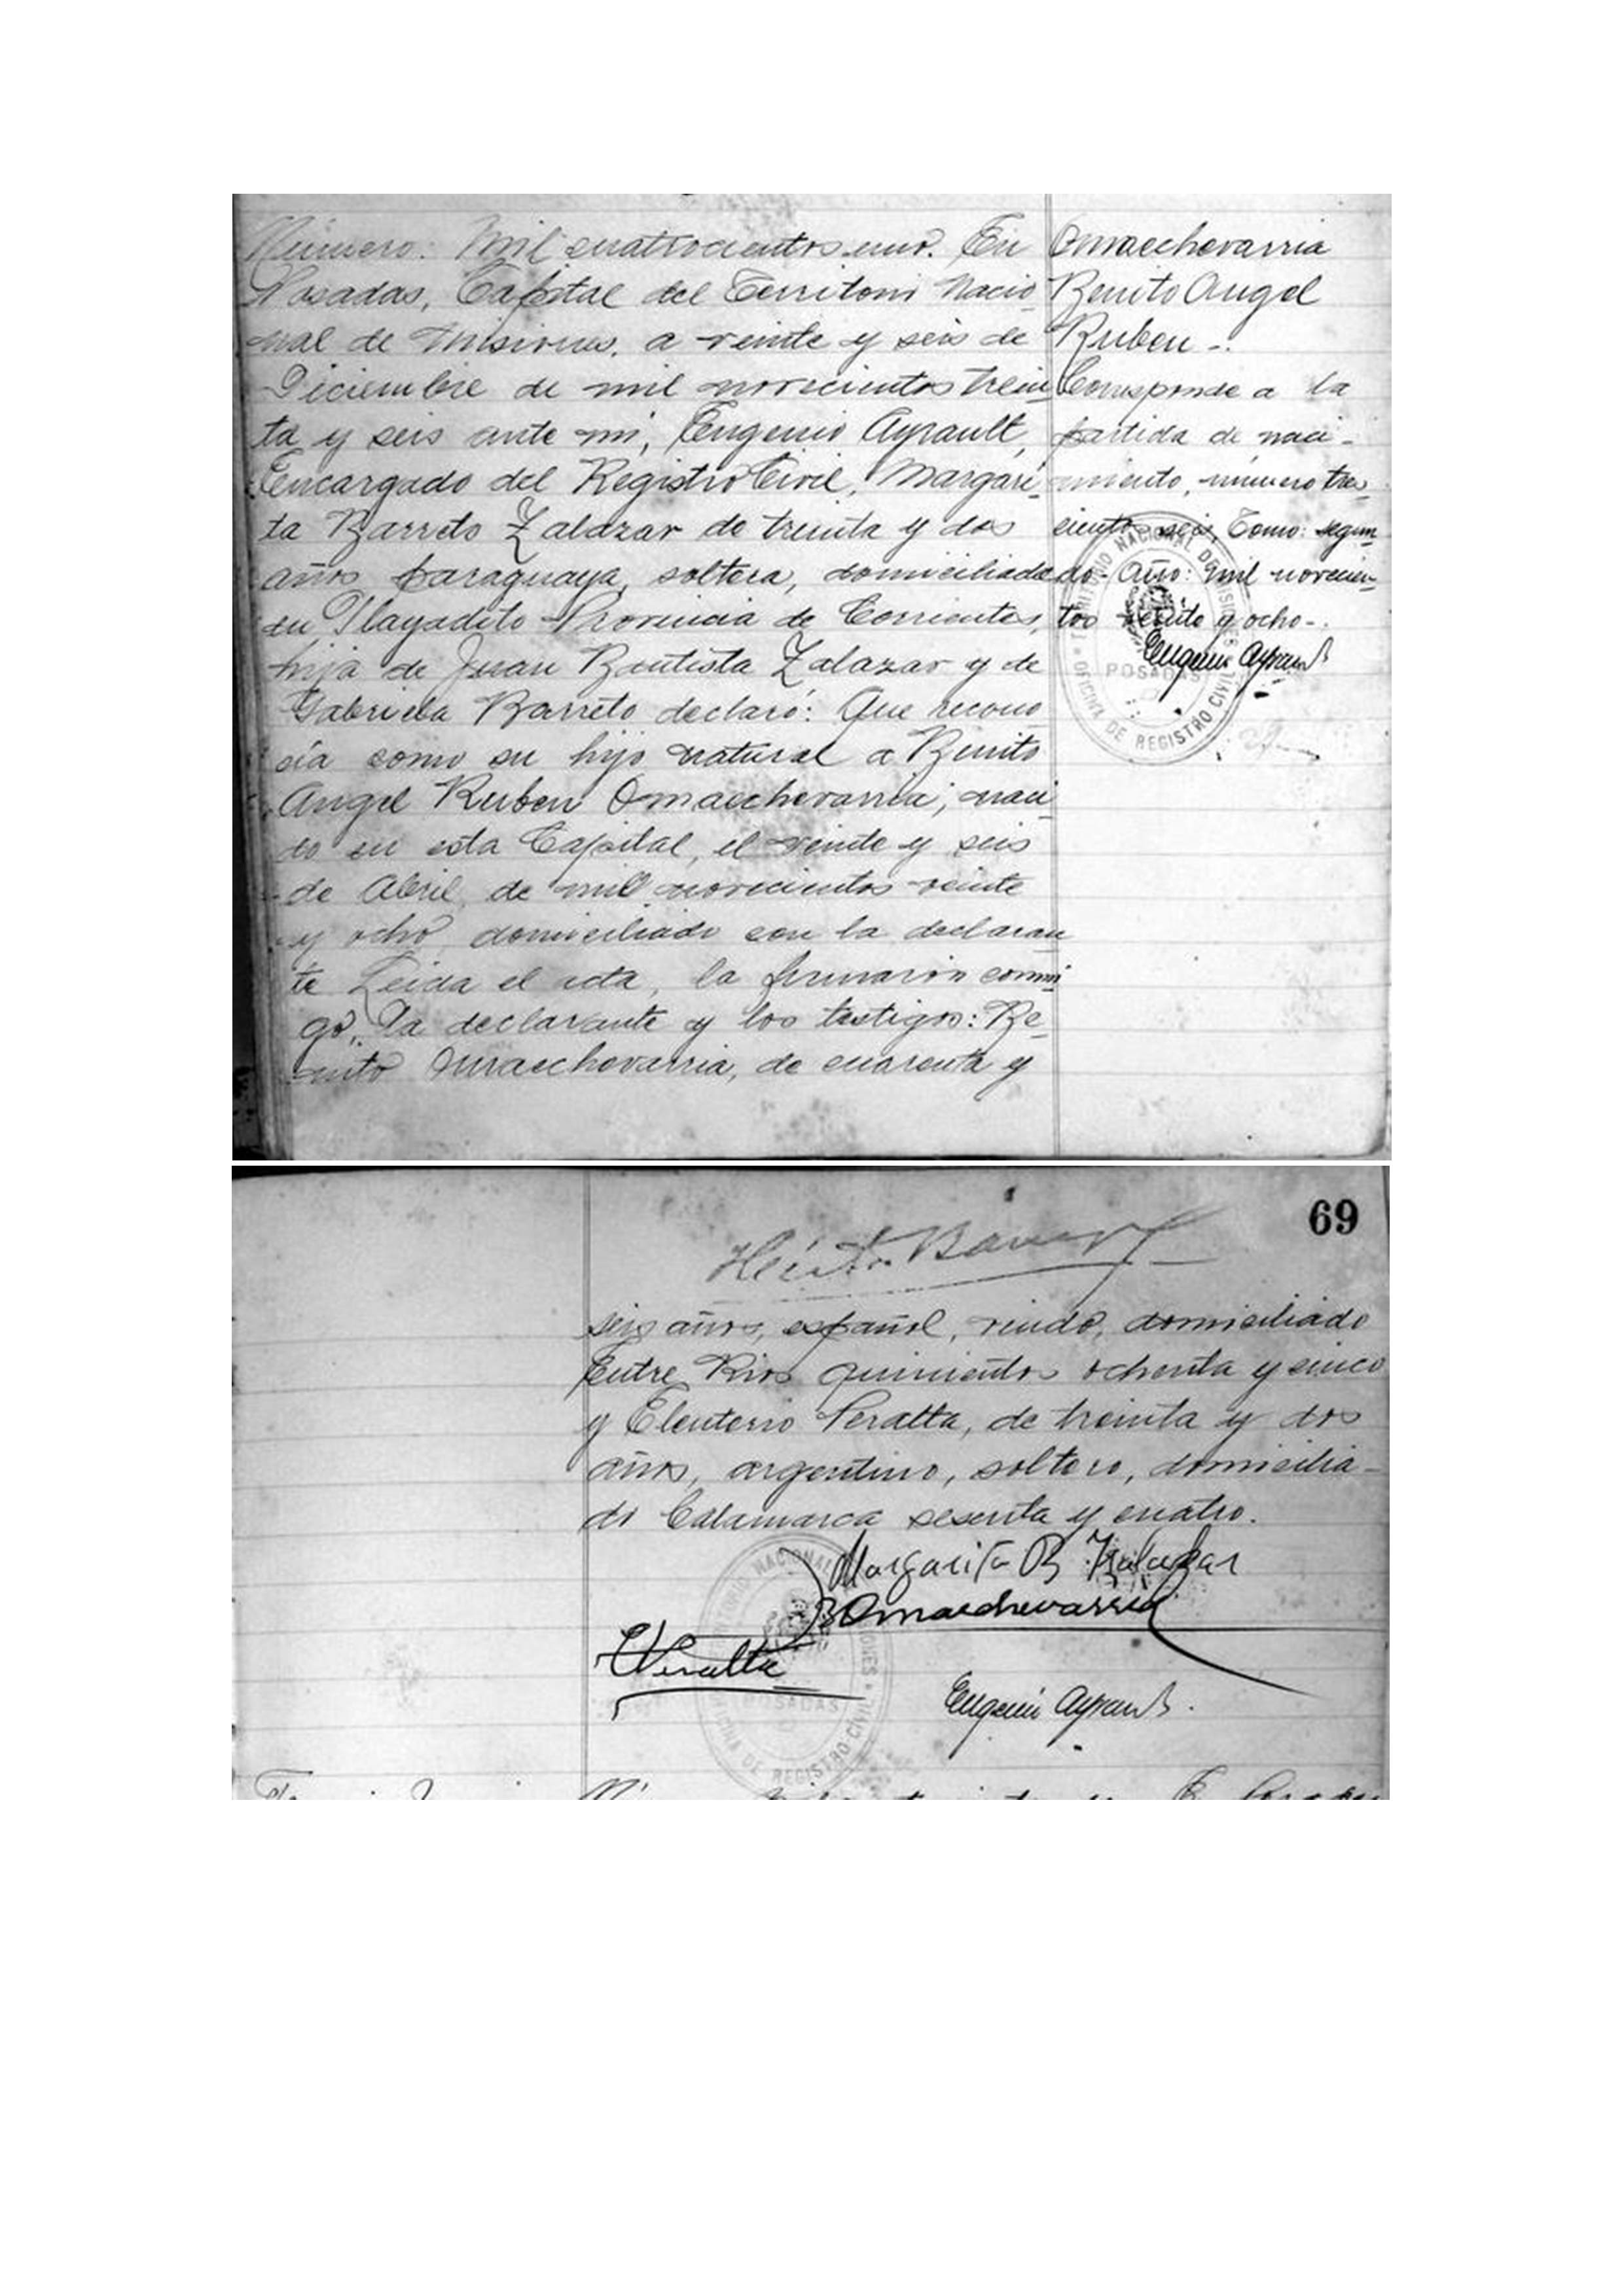 Número: Mil cuatrocientos uno. En
Posadas, Capital del Territorio Nacio
nal de Misiones, a veinte y seis de
Diciembre de mil novecientos trein
ta y seis ante mi, Eugenio Ayrault,
Encargado del Registro Civil, Margari_
ta Barreto Zalazar de treinta y dos
años, paraguaya, soltera, domiciliada
en Playadito Provincia de Corrientes,
hija de Juan Bautista Zalazar y de
Gabriela Barreto declaró: Que recono
cía como su hijo natural a Benito
Angel Ruben Omaechevarria; naci
do en esta Capital, el veinte y seis
de Abril de mil novecientos veinte
y ocho, domiciliado con la declaran
te Leida el acta, la firmaron conmi
go, la declarante y los testigos: Be_
nito Omaechevarria, de cuarenta y
Omaechevarria
Benito Angel
Ruben -.
Corresponde a la
partida de naci-
miento, número tres_
cientos seis, Tomo: segun_
do- Año: mil novecien_
tos veinte y ocho-.
Eugenio Ayrault
TERRITORIO NACIONAL DE MISIONES
POSADAS
OFICINA DE REGISTRO CIVIL
69
seis años, español, viudo, domiciliado
Entre Rios quinientos ochenta y cinco
y Eleuterio Peralta, de treinta y dos
años, argentino, soltero, domicilia-
do Catamarca sesenta y cuatro.
Margarita B Zalazar
B Omaechevarria
E Peralta
Eugenio Ayrault.
TERRITORIO NACIONAL DE MISIONES
POSADAS
OFICINA DE REGISTRO CIVIL